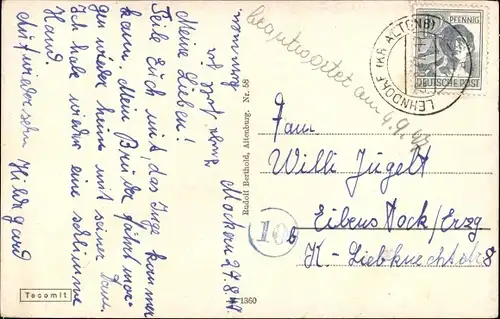 Mockern 27.8.47
Meine Lieben!
Teile Euch mit, das Inge kommen
kann. Mein Bruder fährt mor-
gen wieder heim mit seiner
Ich habe wieder eine schlimme
Hand.
Auf wiedersehn Hildegard
Tecomit
Rudolf Berthold, Altenburg. Nr. 58
1360
beantwortet am 4.9.47
LEHNDORF (KR ALTENBG)
PFENNIG
DEUTSCHE POST
Fam
Willi Jügelt
Eibenstock/Erzg
K-Liebknechtstr 8
10b